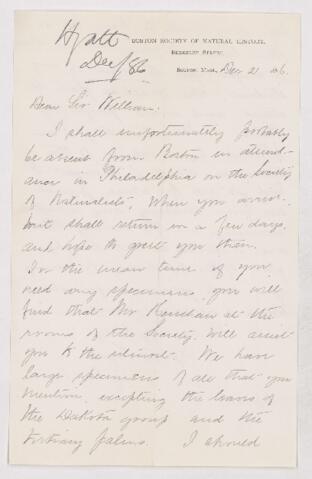 Hyatt
Dec/86
BOSTON SOCIETY OF NATURAL HISTORY,
BERKELEY STREET.
BOSTON, MASS., Dec 21 1886.
Dear Sir William:
I shall unfortunately probably
be absent from Boston in attend-
ance in Philadelphia on the Society
of Naturalists, when you arrive
but shall return in a few days
and hope to greet you then.
In the mean time if you
need any specimens you will
find that Mr Henshaw at the
rooms of the Society will assist
you to the utmost. We have
large specimens of all that you
mention, excepting the leaves of
the Dakota group and the
tertiary palms. I should